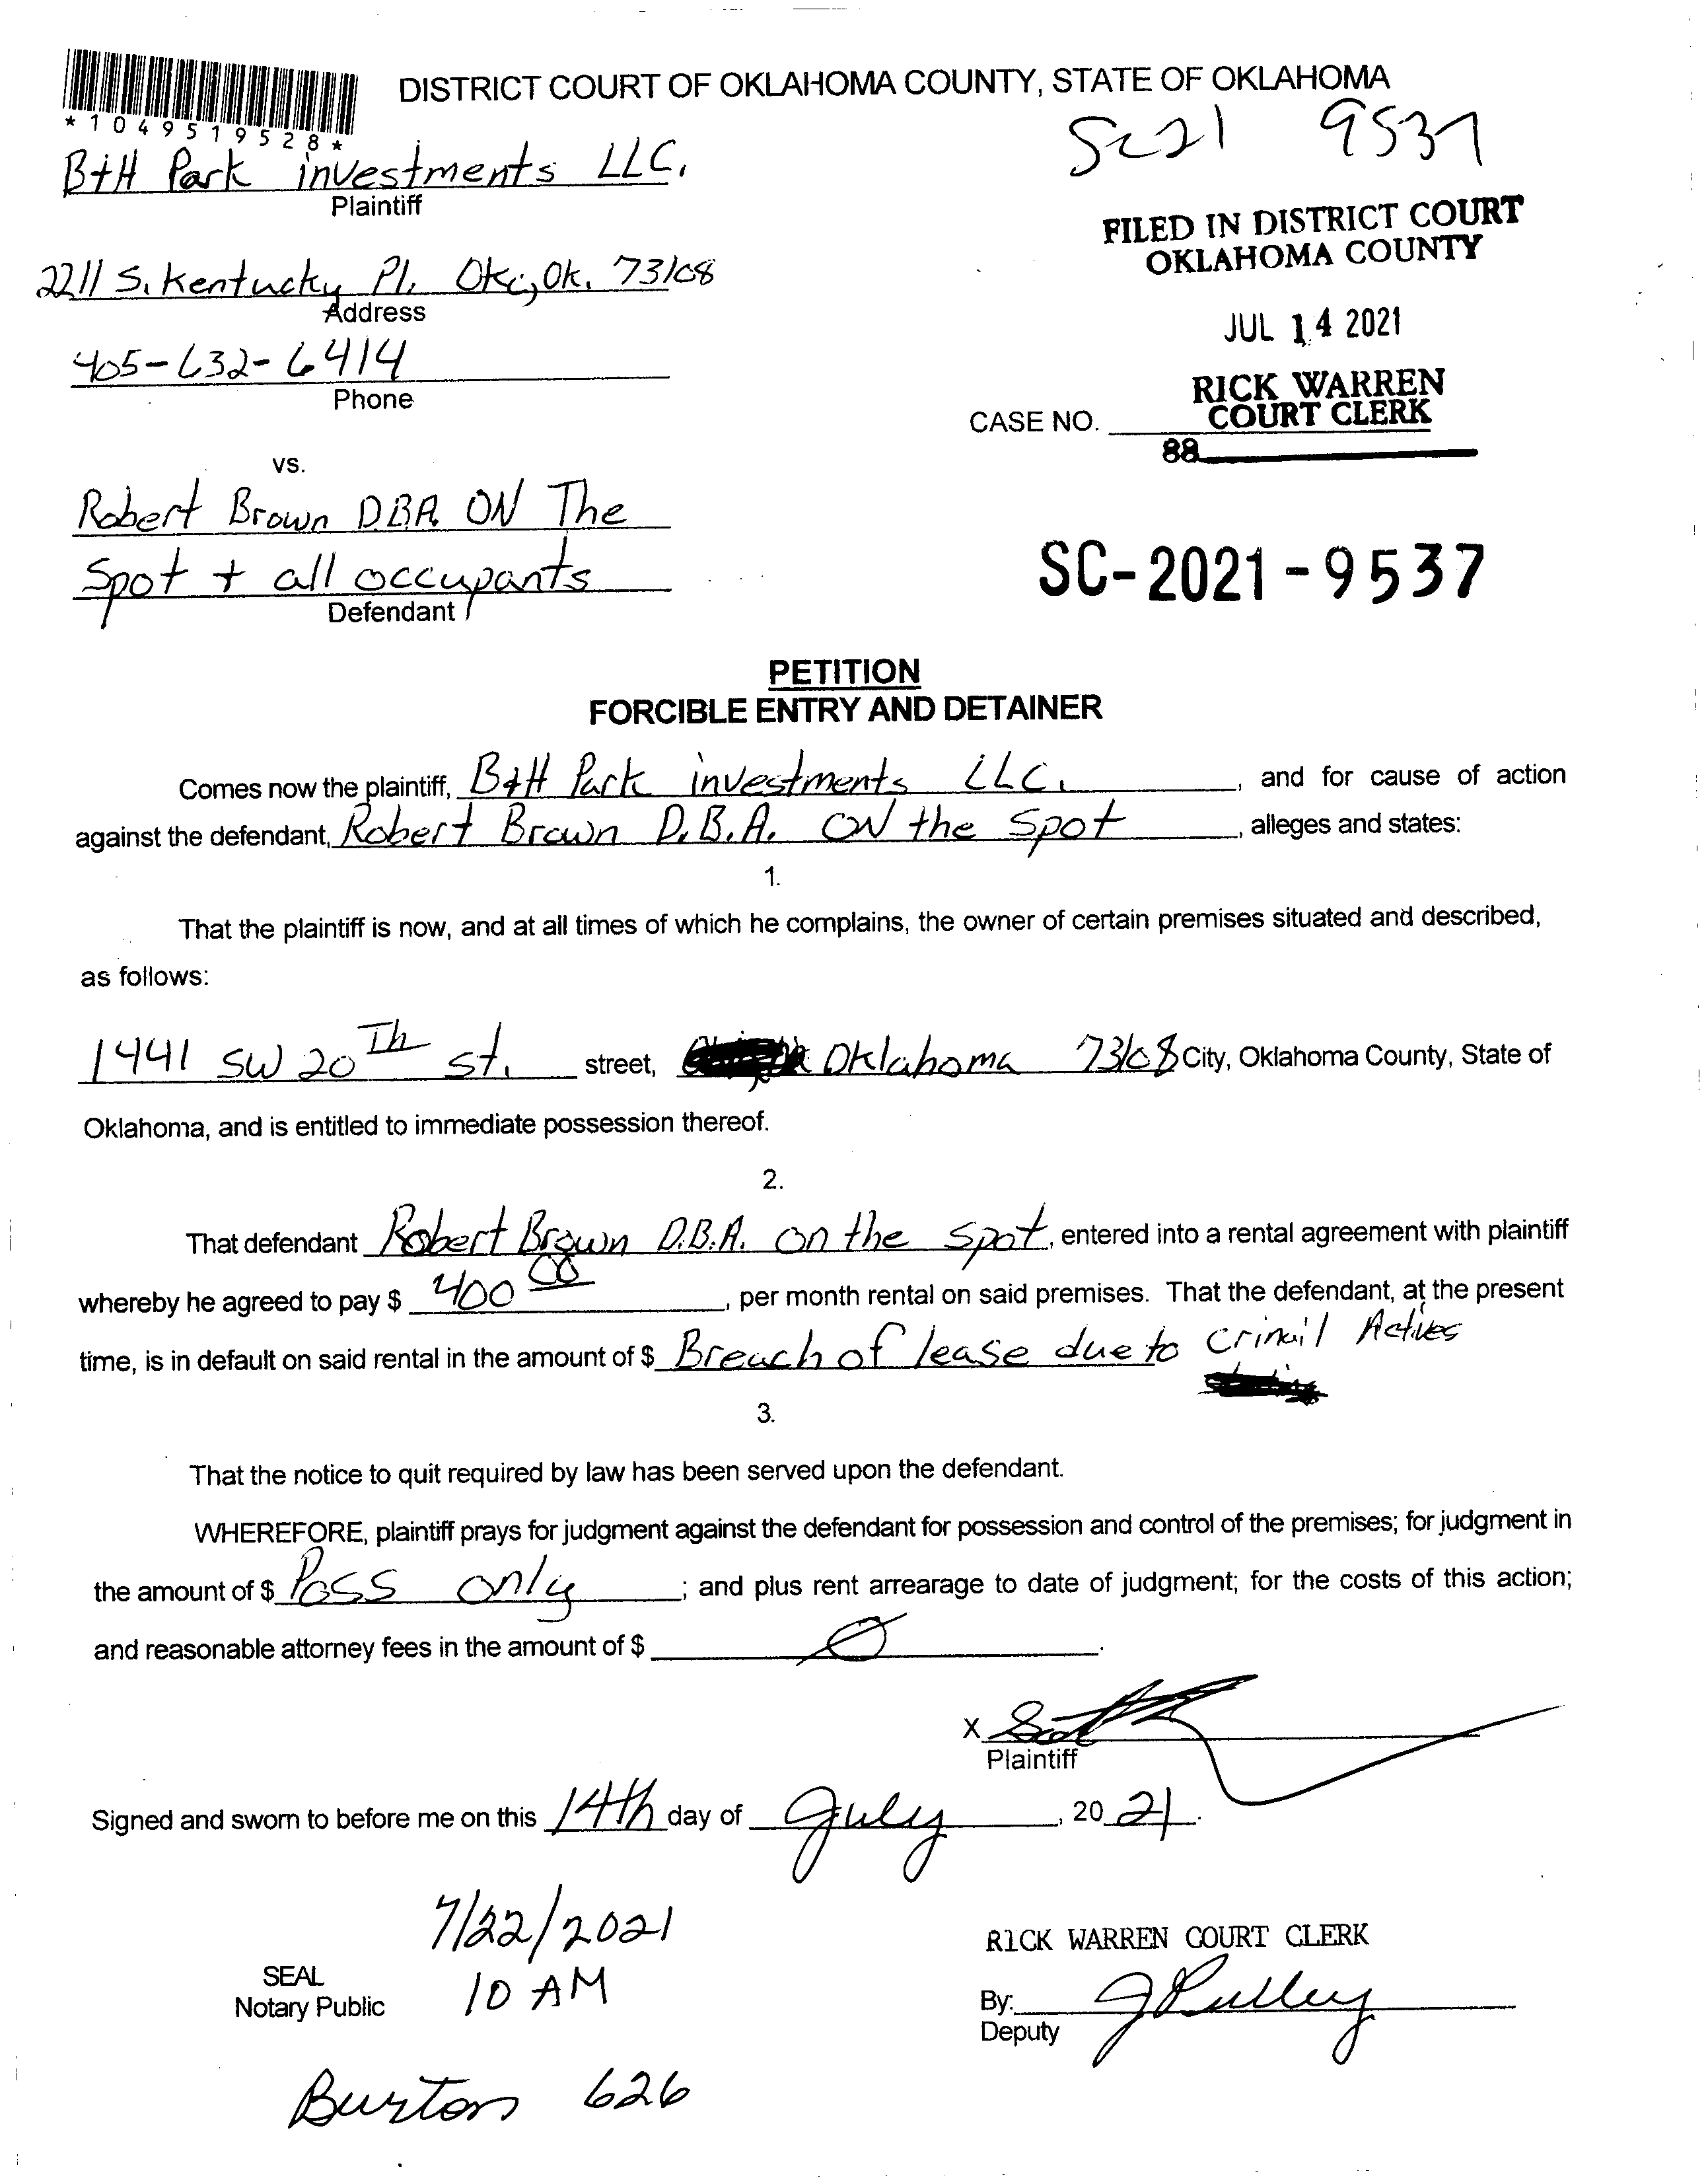 DISTRICT COURT OF OKLAHOMA COUNTY, STATE OF OKLAHOMA
*1049519528*
SC21 9537
B+H Park investments LLC.
Plaintiff
FILED IN DISTRICT COURT
OKLAHOMA COUNTY
2211 S. Kentucky Pl. Okc, Ok. 73108
Address
JUL 14 2021
405-632-6414
Phone
RICK WARREN
COURT CLERK
CASE NO.
88
vs.
Robert Brown D.B.A. ON The
Spot + all occupants
Defendant
SC-2021-9537
PETITION
FORCIBLE ENTRY AND DETAINER
Comes now the plaintiff, B+H Park investments LLC. , and for cause of action
against the defendant, Robert Brown D.B.A. ON the Spot , alleges and states:
1.
That the plaintiff is now, and at all times of which he complains, the owner of certain premises situated and described,
as follows:
1441 SW 20Th st. street, Oklahoma 73108 City, Oklahoma County, State of
Oklahoma, and is entitled to immediate possession thereof.
2.
That defendant Robert Brown D.B.A. on the spot , entered into a rental agreement with plaintiff
whereby he agreed to pay $ 400 00 , per month rental on said premises. That the defendant, at the present
time, is in default on said rental in the amount of $ Breach of lease due to
3.
That the notice to quit required by law has been served upon the defendant.
WHEREFORE, plaintiff prays for judgment against the defendant for possession and control of the premises; for judgment in
the amount of $ Poss only ; and plus rent arrearage to date of judgment; for the costs of this action;
and reasonable attorney fees in the amount of $ Ø .
X
Plaintiff
Signed and sworn to before me on this 14th day of July , 20 21 .
7/22/2021
10 AM
SEAL
Notary Public
RICK WARREN COURT CLERK
By: J Pulley
Deputy
Burton 626